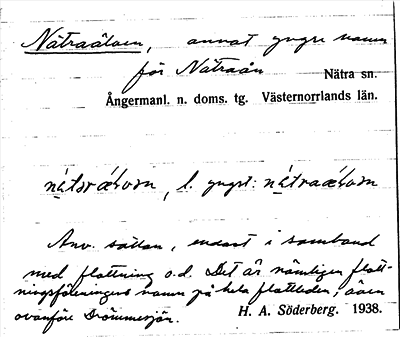 Nätraälven, annat yngre namn
för Nätraån
Nätra sn.
Ångermanl. n. doms. tg. Västernorrlands län.
l. yngst:
Anv. sällan, endast i samband
med flottning o.d. Det är nämligen flott-
ningsföreningens namn på hela flottleden, även
ovanför Drömmesjön.
H. A. Söderberg. 1938.